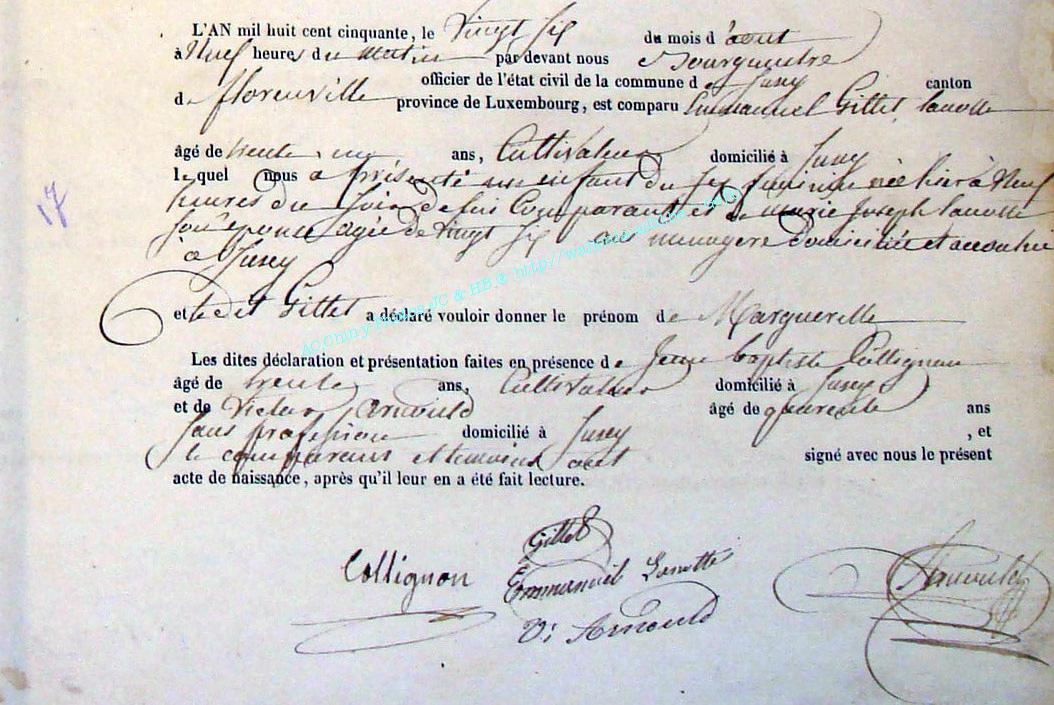 L'AN mil huit cent cinquante, le Vingt Six du mois d'août
à Neuf heures du matin par devant nous Bourgmestre
officier de l'état civil de la commune de Jusey canton
de florenville province de Luxembourg, est comparu Emmanuel Gillet Lanotte
âgé de trente ans, Cultivateur domicilié à Jusey
le quel nous a présenté un enfant du Sex féminin née hier à Neuf
heures du Soir de lui Comparant et de marie Joseph Lanotte
son épouse agée de vingt Six ans menagère domiciliée et accouchée
à Jusey
et le dit Gillet a déclaré vouloir donner le prénom de Marguerille
Les dites déclaration et présentation faites en présence de Jean baptiste Collignon
âgé de trente ans, Cultivateur domicilié à Jusey
et de Victor Arnould âgé de quarente ans
sans profession domicilié à Jusey , et
le comparant et temoins ont signé avec nous le présent
acte de naissance, après qu'il leur en a été fait lecture.
17
Gillet
Collignon Emmanuel Lanotte Arnould
Vi Arnould